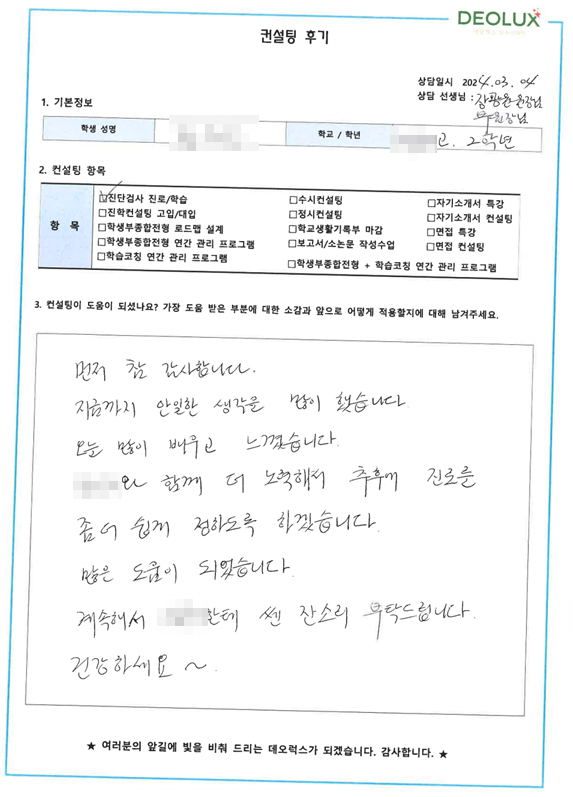 DEOLUX
컨설팅 후기
상담일시 2024.03.04
상담 선생님 : 원장님
부원장님
1. 기본정보
학생 성명
학교 / 학년
고. 2학년
2. 컨설팅 항목
항 목
☑진단검사 진로/학습
□수시컨설팅
□자기소개서 특강
□진학컨설팅 고입/대입
□정시컨설팅
□자기소개서 컨설팅
□학생부종합전형 로드맵 설계
□학교생활기록부 마감
□면접 특강
□학생부종합전형 연간 관리 프로그램
□보고서/소논문 작성수업
□면접 컨설팅
□학습코칭 연간 관리 프로그램
□학생부종합전형 + 학습코칭 연간 관리 프로그램
3. 컨설팅이 도움이 되셨나요? 가장 도움 받은 부분에 대한 소감과 앞으로 어떻게 적용할지에 대해 남겨주세요.
먼저 참 감사합니다.
지금까지 안일한 생각을 많이 했습니다.
오늘 많이 배우고 느꼈습니다.
와 함께 더 노력해서 추후에 진로를
좀 더 쉽게 정하도록 하겠습니다.
많은 도움이 되었습니다.
계속해서 한테 쎈 잔소리 부탁드립니다.
건강하세요 ~
★ 여러분의 앞길에 빛을 비춰 드리는 데오럭스가 되겠습니다. 감사합니다. ★